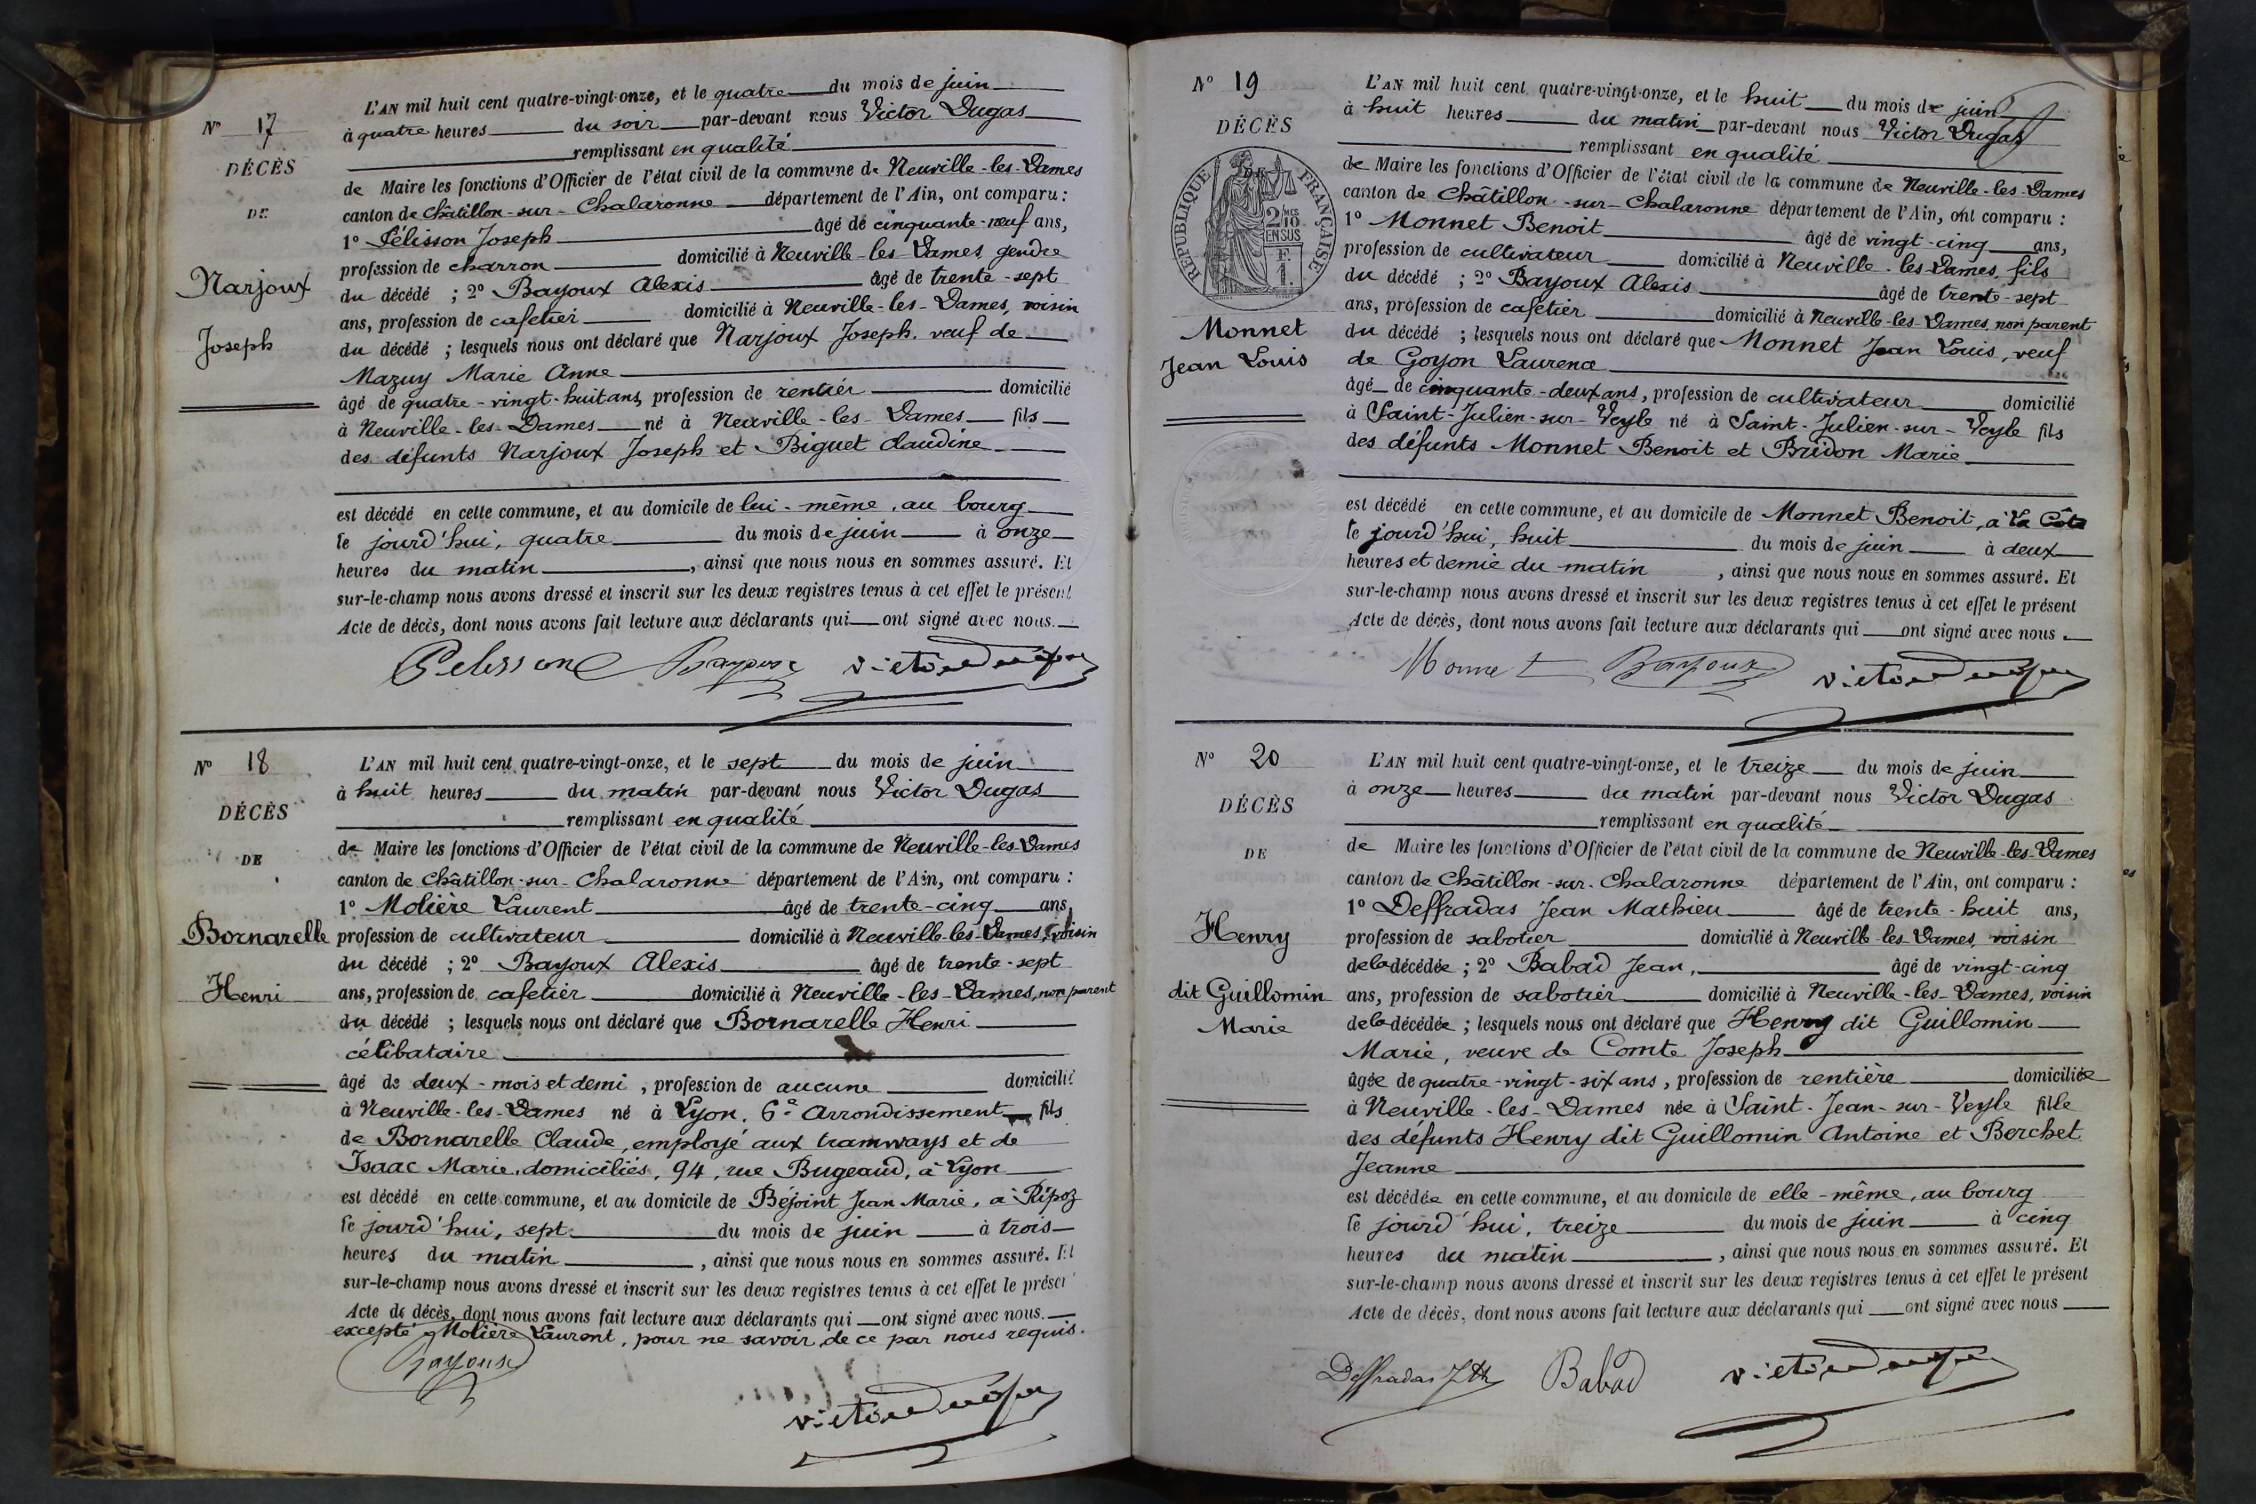 N° 17
DÉCÈS
DE
Narjoux
Joseph
L'AN mil huit cent quatre-vingt-onze, et le quatre du mois de juin
à quatre heures du soir par-devant nous Victor Dugas
remplissant en qualité
de Maire les fonctions d'Officier de l'état civil de la commune de Neuville-les-Dames
canton de Châtillon-sur-Chalaronne département de l'Ain, ont comparu :
1° Pélisson Joseph âgé de cinquante-neuf ans,
profession de charron domicilié à Neuville-les-Dames, gendre
du décédé ; 2° Bayoux Alexis âgé de trente-sept
ans, profession de cafetier domicilié à Neuville-les-Dames, voisin
du décédé ; lesquels nous ont déclaré que Narjoux Joseph, veuf de
Mazuy Marie Anne
âgé de quatre-vingt-huit ans, profession de rentier domicilié
à Neuville-les-Dames né à Neuville-les-Dames fils
des défunts Narjoux Joseph et Biguet Claudine
est décédé en cette commune, et au domicile de lui-même, au bourg
le jourd'hui, quatre du mois de juin à onze
heures du matin, ainsi que nous nous en sommes assuré. Et
sur-le-champ nous avons dressé et inscrit sur les deux registres tenus à cet effet le présent
Acte de décès, dont nous avons fait lecture aux déclarants qui ont signé avec nous.
Pelisson Bayoux Victor Dugas
N° 18
DÉCÈS
DE
Bornarelle
Henri
L'AN mil huit cent quatre-vingt-onze, et le sept du mois de juin
à huit heures du matin par-devant nous Victor Dugas
remplissant en qualité
de Maire les fonctions d'Officier de l'état civil de la commune de Neuville-les-Dames
canton de Châtillon-sur-Chalaronne département de l'Ain, ont comparu :
1° Molière Laurent âgé de trente-cinq ans,
profession de cultivateur domicilié à Neuville-les-Dames, voisin
du décédé ; 2° Bayoux Alexis âgé de trente-sept
ans, profession de cafetier domicilié à Neuville-les-Dames, non parent
du décédé ; lesquels nous ont déclaré que Bornarelle Henri
célibataire
âgé de deux-mois et demi, profession de aucune domicilié
à Neuville-les-Dames né à Lyon, 6e Arrondissement fils
de Bornarelle Claude, employé aux tramways et de
Isaac Marie, domiciliés, 94, rue Bugeaud, à Lyon
est décédé en cette commune, et au domicile de Béjoint Jean Marie, à Ripoz
le jourd'hui, sept du mois de juin à trois
heures du matin, ainsi que nous nous en sommes assuré. Et
sur-le-champ nous avons dressé et inscrit sur les deux registres tenus à cet effet le présent
Acte de décès, dont nous avons fait lecture aux déclarants qui ont signé avec nous.
excepté Molière Laurent, pour ne savoir de ce par nous requis.
Bayoux
Victor Dugas
N° 19
DÉCÈS
RÉPUBLIQUE FRANÇAISE
2 MES 10 EN SUS
F. 1.
Monnet
Jean Louis
L'AN mil huit cent quatre-vingt-onze, et le huit du mois de juin
à huit heures du matin par-devant nous Victor Dugas
remplissant en qualité
de Maire les fonctions d'Officier de l'état civil de la commune de Neuville-les-Dames
canton de Châtillon-sur-Chalaronne département de l'Ain, ont comparu :
1° Monnet Benoit âgé de vingt-cinq ans,
profession de cultivateur domicilié à Neuville-les-Dames, fils
du décédé ; 2° Bayoux Alexis âgé de trente-sept
ans, profession de cafetier domicilié à Neuville-les-Dames, non parent
du décédé ; lesquels nous ont déclaré que Monnet Jean Louis, veuf
de Goyon Laurence
âgé de cinquante-deux ans, profession de cultivateur domicilié
à Saint-Julien-sur-Veyle né à Saint-Julien-sur-Veyle fils
des défunts Monnet Benoit et Bridon Marie
est décédé en cette commune, et au domicile de Monnet Benoit, à la Côte
le jourd'hui, huit du mois de juin à deux
heures et demie du matin, ainsi que nous nous en sommes assuré. Et
sur-le-champ nous avons dressé et inscrit sur les deux registres tenus à cet effet le présent
Acte de décès, dont nous avons fait lecture aux déclarants qui ont signé avec nous.
Monnet Bayoux Victor Dugas
N° 20
DÉCÈS
DE
Henry
dit Guillomin
Marie
L'AN mil huit cent quatre-vingt-onze, et le treize du mois de juin
à onze heures du matin par-devant nous Victor Dugas
remplissant en qualité
de Maire les fonctions d'Officier de l'état civil de la commune de Neuville-les-Dames
canton de Châtillon-sur-Chalaronne département de l'Ain, ont comparu :
1° Deffradas Jean Mathieu âgé de trente-huit ans,
profession de sabotier domicilié à Neuville-les-Dames, voisin
de la décédée ; 2° Babad Jean, âgé de vingt-cinq
ans, profession de sabotier domicilié à Neuville-les-Dames, voisin
de la décédée ; lesquels nous ont déclaré que Henry dit Guillomin
Marie, veuve de Comte Joseph
âgée de quatre-vingt-six ans, profession de rentière domiciliée
à Neuville-les-Dames née à Saint-Jean-sur-Veyle fille
des défunts Henry dit Guillomin Antoine et Berchet
Jeanne
est décédée en cette commune, et au domicile de elle-même, au bourg
le jourd'hui, treize du mois de juin à cinq
heures du matin, ainsi que nous nous en sommes assuré. Et
sur-le-champ nous avons dressé et inscrit sur les deux registres tenus à cet effet le présent
Acte de décès, dont nous avons fait lecture aux déclarants qui ont signé avec nous
Deffradas Babad Victor Dugas